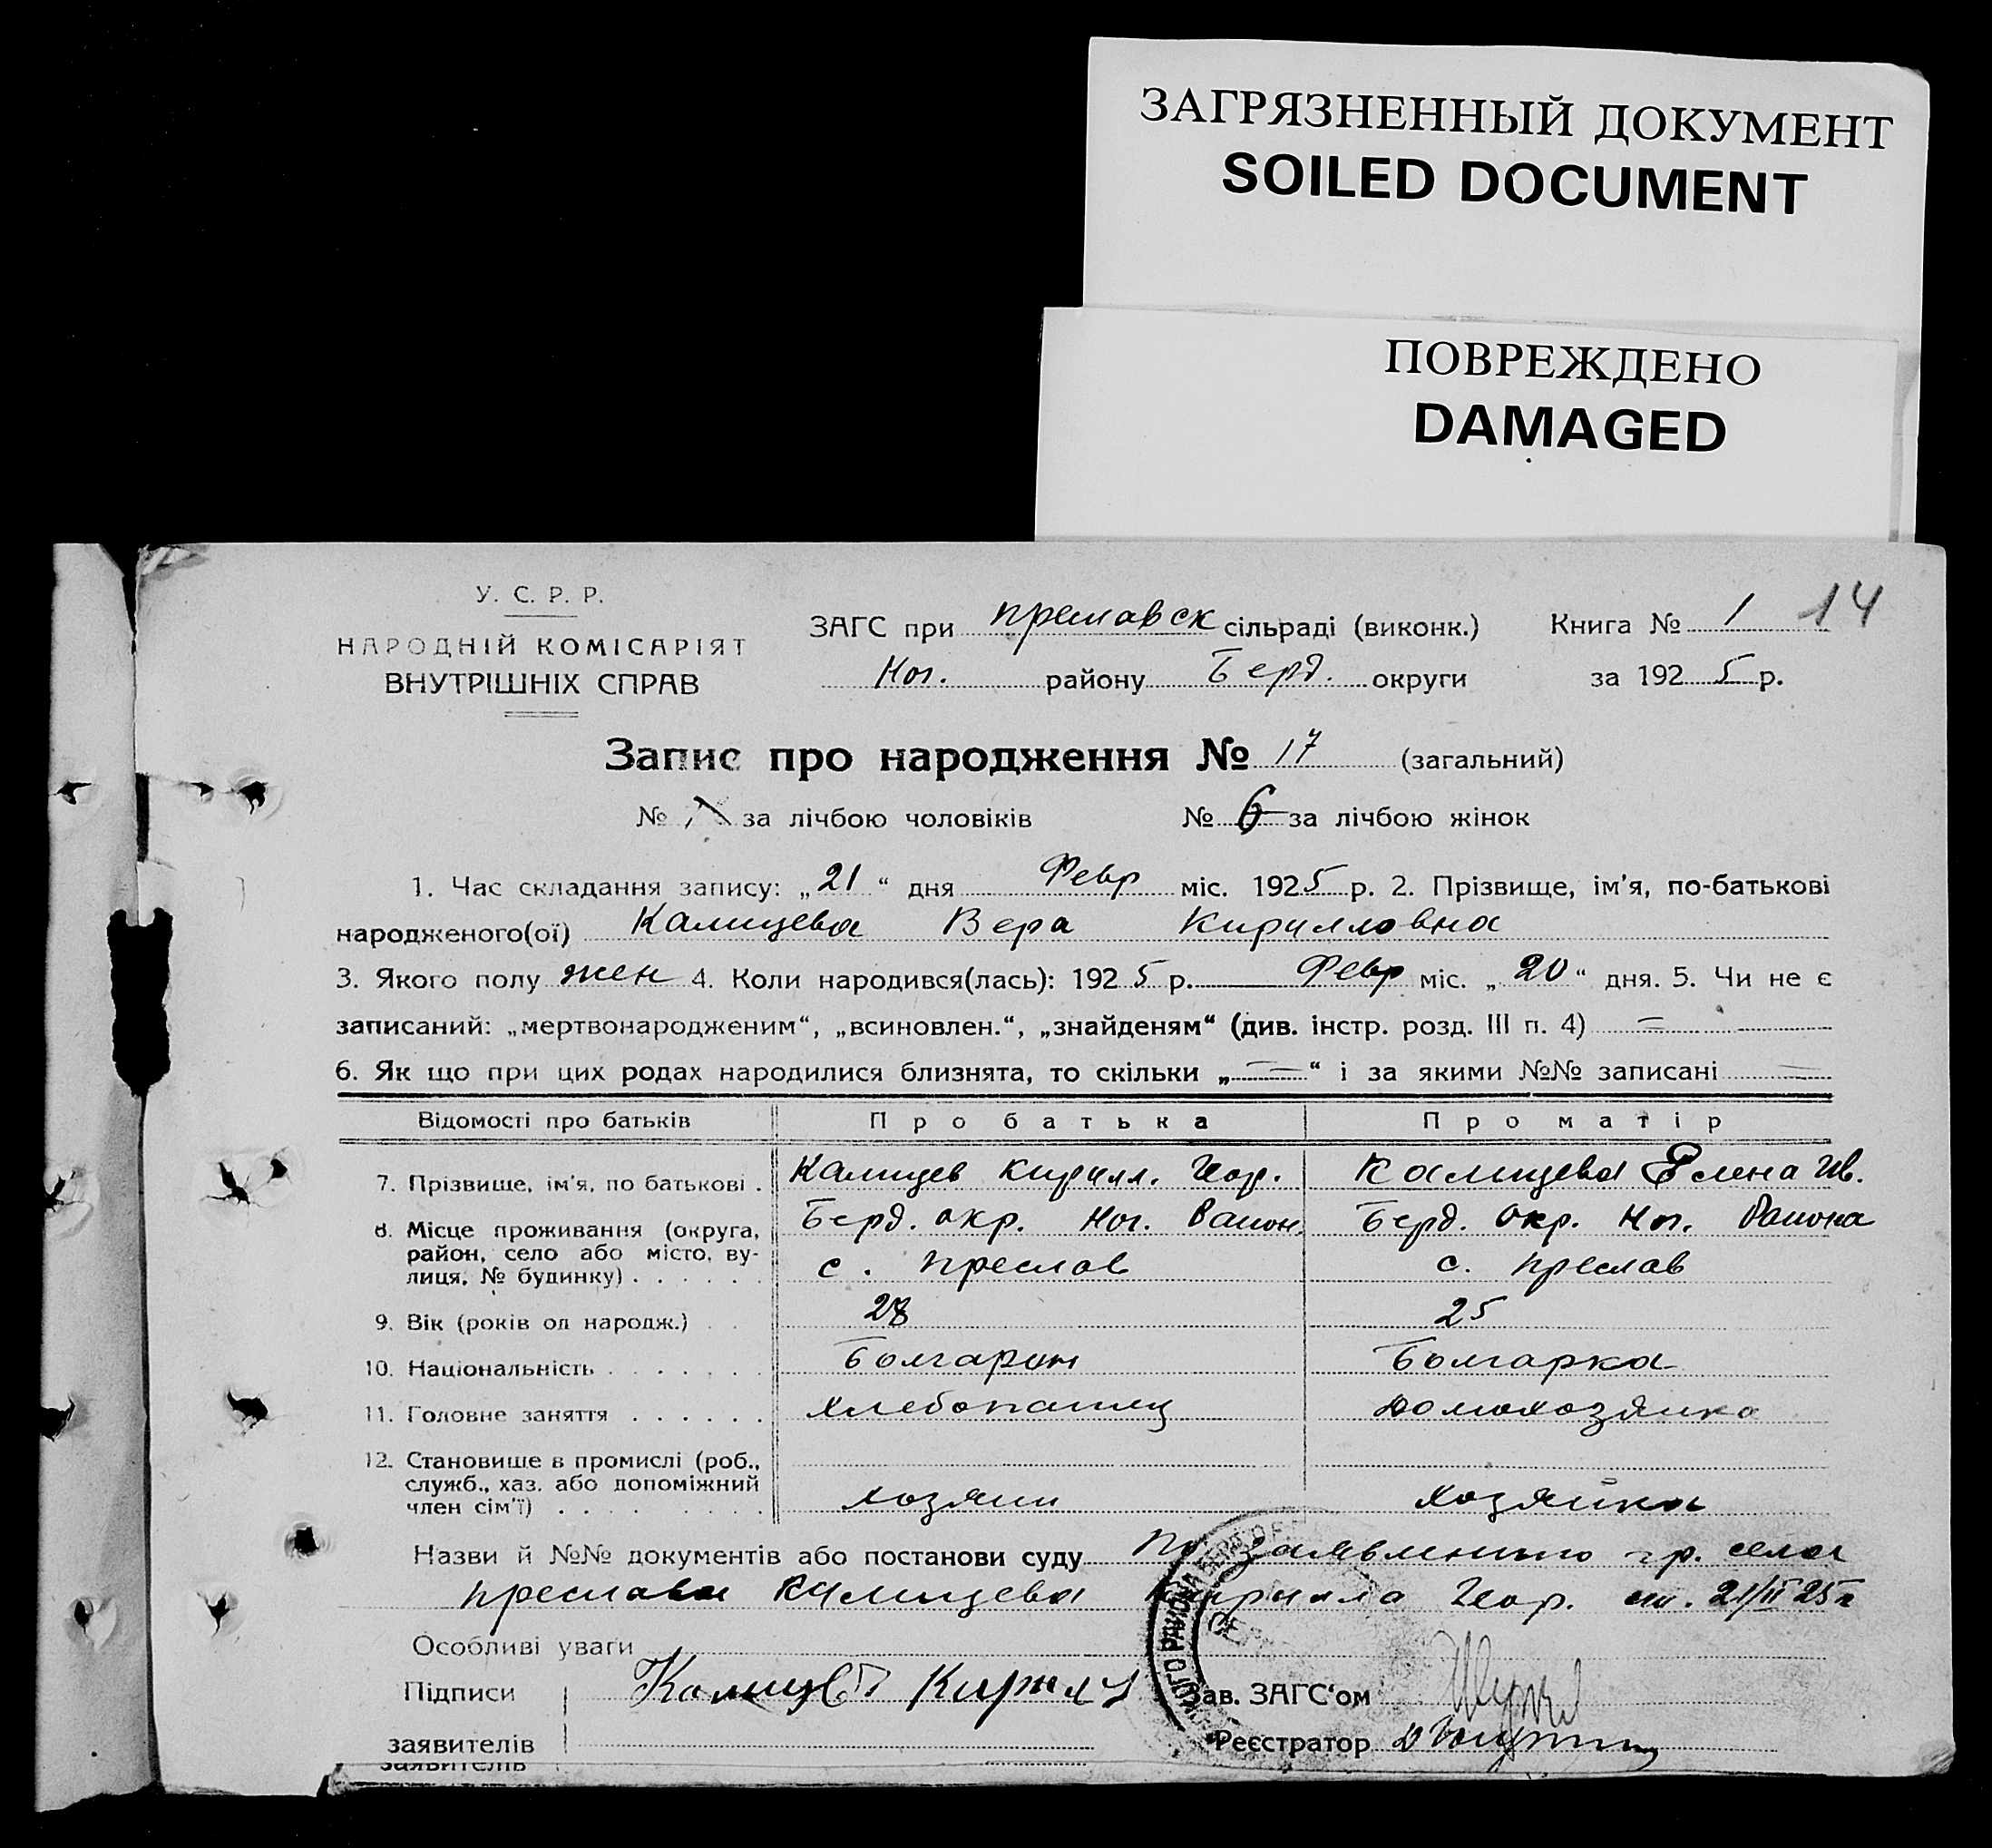 ЗАГРЯЗНЕННЫЙ ДОКУМЕНТ
SOILED DOCUMENT
ПОВРЕЖДЕНО
DAMAGED
У. С. Р. Р.
НАРОДНІЙ КОМІСАРІЯТ
ВНУТРІШНІХ СПРАВ
ЗАГС при Преславск сільраді (виконк.) Книга № 1 14
Ног. району Берд. округи за 1925 р.
Запис про народження № 17 (загальний)
№ за лічбою чоловіків № 6 за лічбою жінок
1. Час складання запису: „21“ дня Февр міс. 1925 р. 2. Прізвище, ім'я, по-батькові
народженого(ої) Калицева Вера Кирилловна
3. Якого полу жен 4. Коли народився(лась): 1925 р. Февр міс. „20“ дня. 5. Чи не є
записаний: „мертвонародженим“, „всиновлен.“, „знайденям“ (див. інстр. розд. III п. 4) =
6. Як що при цих родах народилися близнята, то скільки „=“ і за якими №№ записані =
Відомості про батьків Про батька Про матір
7. Прізвище, ім'я, по батькові . Калицев Кирилл. Геор. Калицева Елена Ив.
8. Місце проживання (округа, Берд. окр. Ног. Район, Берд. Окр. Ног. Района
район, село або місто, ву-
лиця, № будинку) . . . . . . с. Преслав с. Преслав
9. Вік (років од народж.) . . 28 25
10. Національність . . . . . . . Болгарин Болгарка
11. Головне заняття . . . . . . хлебопашец домохозяйка
12. Становище в промислі (роб.,
служб., хаз. або допоміжний
член сім'ї) . . . . . . . . хозяин хозяйка
Назви й №№ документів або постанови суду По заявлению гр. села
Преслава Калицева Кирилла Геор. от. 21/II 25 г
Особливі уваги
Підписи Калицев Кирил Зав. ЗАГС'ом
заявителів Реєстратор
заявителів